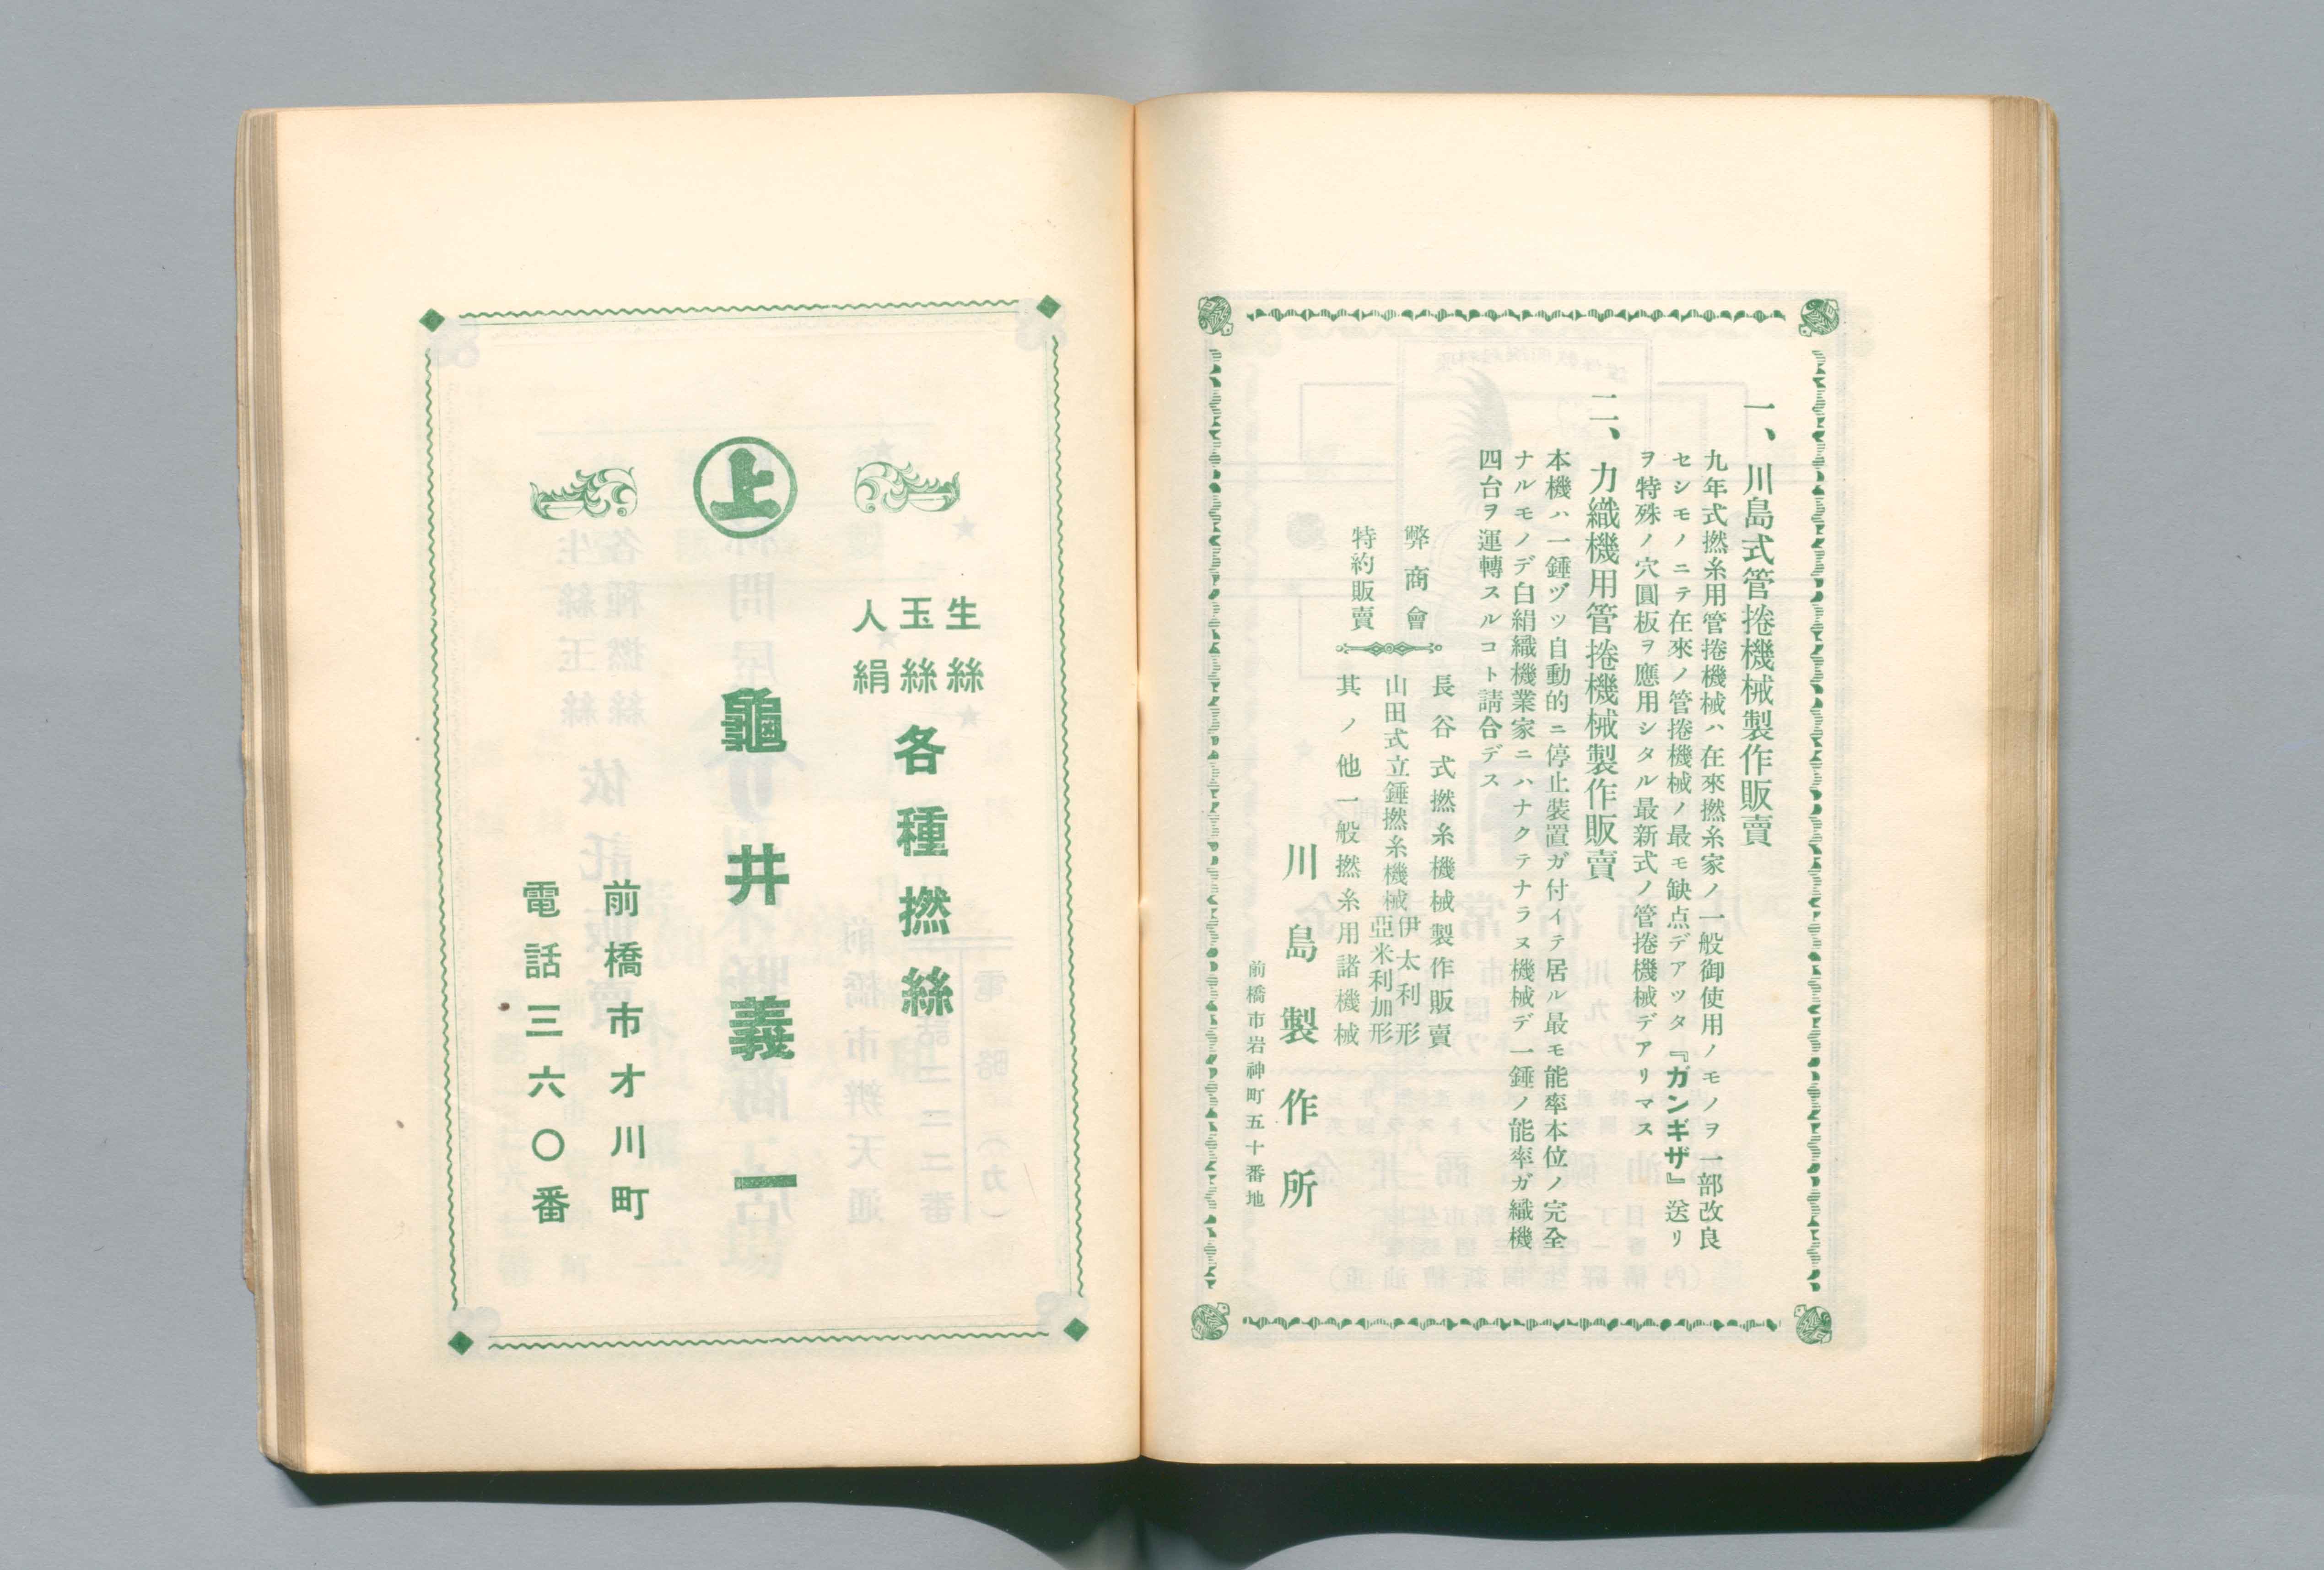 一、川島式管捲機械製作販賣
九年式撚糸用管捲機械ハ在來撚糸家ノ一般御使用ノモノヲ一部改良
セシモノニテ在來ノ管捲機械ノ最モ缺点デアツタ『ガンギザ』送リ
ヲ特殊ノ穴圓板ヲ應用シタル最新式ノ管捲機械デアリマス
二、力織機用管捲機械製作販賣
本機ハ一錘ヅツ自動的ニ停止裝置ガ付イテ居ル最モ能率本位ノ完全
ナルモノデ白絹織機業家ニハナクテナラヌ機械デ一錘ノ能率ガ織機
四台ヲ運轉スルコト請合デス
弊商會
特約販賣
長谷式撚糸機械製作販賣
山田式立錘撚糸機械
伊太利形
亞米利加形
其ノ他一般撚糸用諸機械
川島製作所
前橋市岩神町五十番地
上
生絲
玉絲
人絹
各種撚絲
龜井義一
前橋市才川町
電話三六〇番